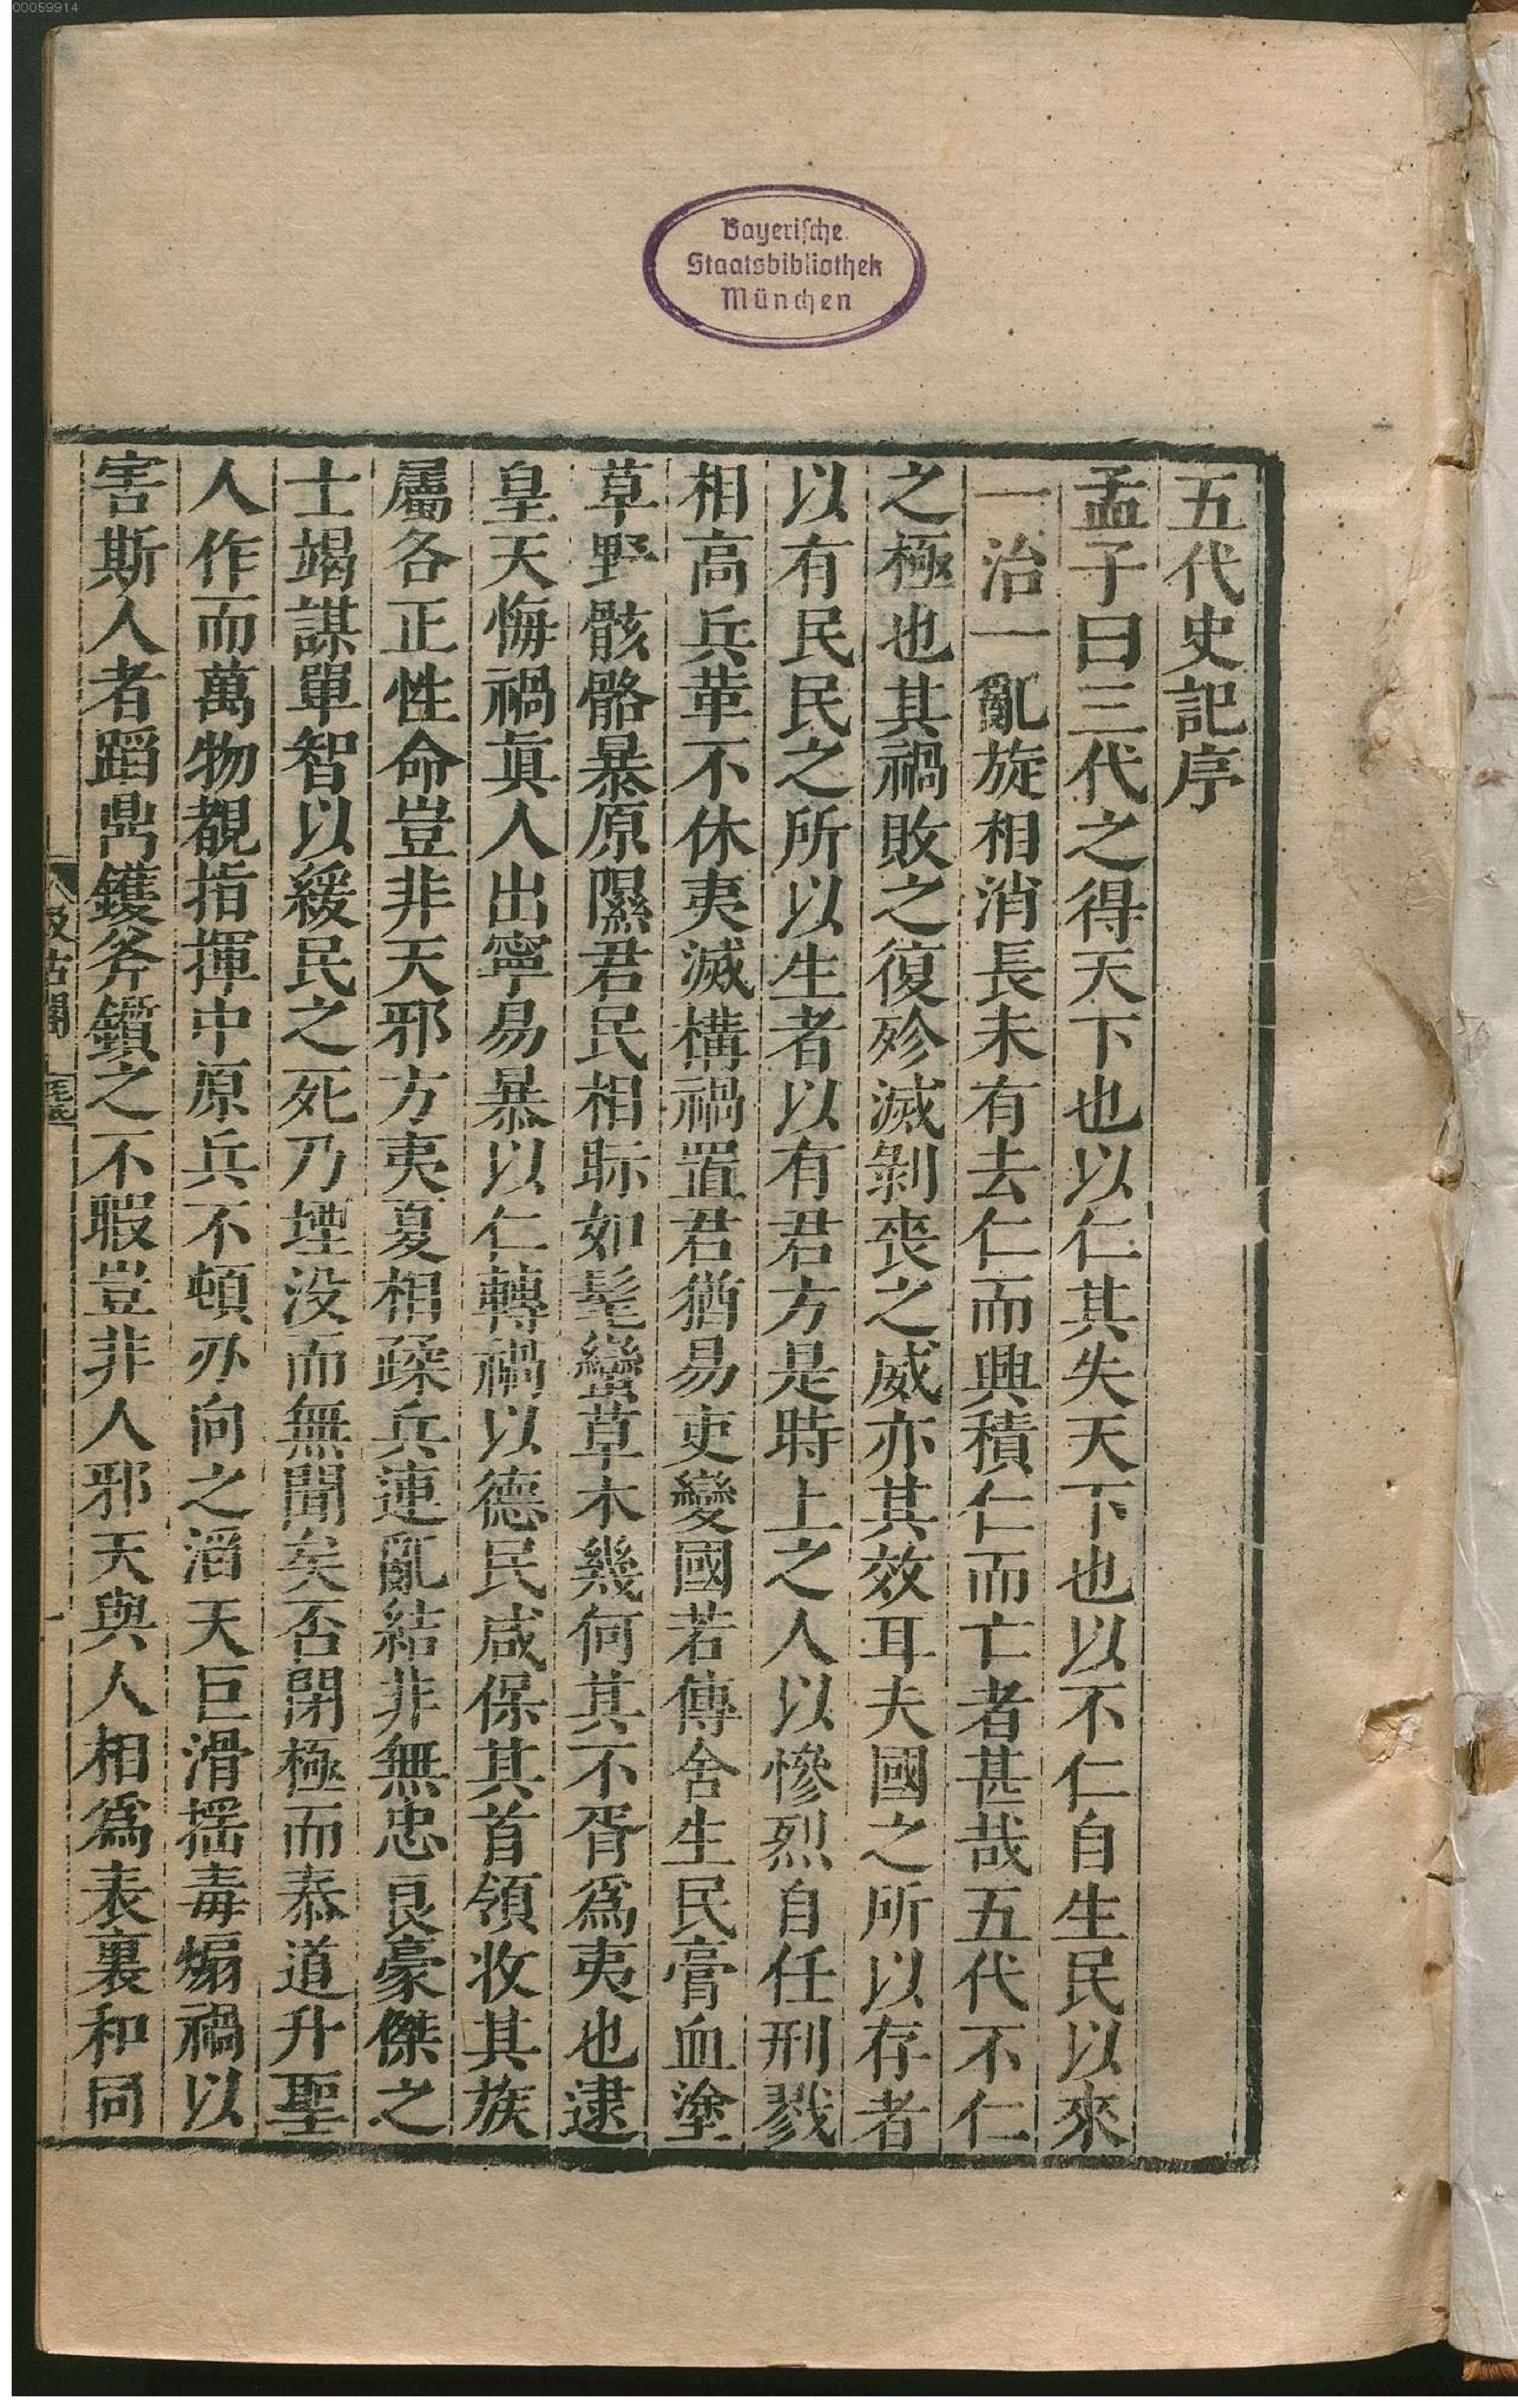 00059914
Bayerische
Staatsbibliothek
München
五代史記序
孟子曰三代之得天下也以仁其失天下也以不仁自生民以來
一治一亂旋相消長未有去仁而興積仁而亡者甚哉五代不仁
之極也其禍敗之復殄滅剝喪之威亦其效耳夫國之所以存者
以有民民之所以生者以有君方是時上之人以慘烈自任刑戮
相高兵革不休夷滅構禍置君猶易吏變國若傳舍生民膏血塗
草野骸骼暴原隰君民相眎如髦蠻草木幾何其不胥爲夷也逮
皇天悔禍眞人出寧易暴以仁轉禍以德民咸保其首領收其族
屬各正性命豈非天邪方夷夏相蹂兵連亂結非無忠良豪傑之
士竭謀單智以緩民之死乃堙没而無聞矣否閉極而泰道升聖
人作而萬物覩指揮中原兵不頓刃向之滔天巨滑揺毒煽禍以
害斯人者蹈鼎鑊斧鑕之不暇豈非人邪天與人相爲表裏和同
汲古閣
一